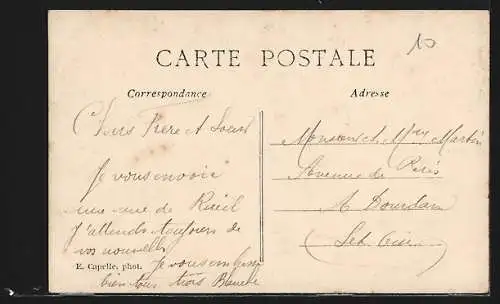 10
CARTE POSTALE
Correspondance
Adresse
Chers Frere et Soeur
Je vous envoie
une vue de Rueil
J'attends toujours de
vos nouvelles
E. Capelle, phot.
Je vous embrasse
bien tous trois Blanche
Monsieur et Mme Martin
Avenue de Paris
A Dourdan
(Set Oise)